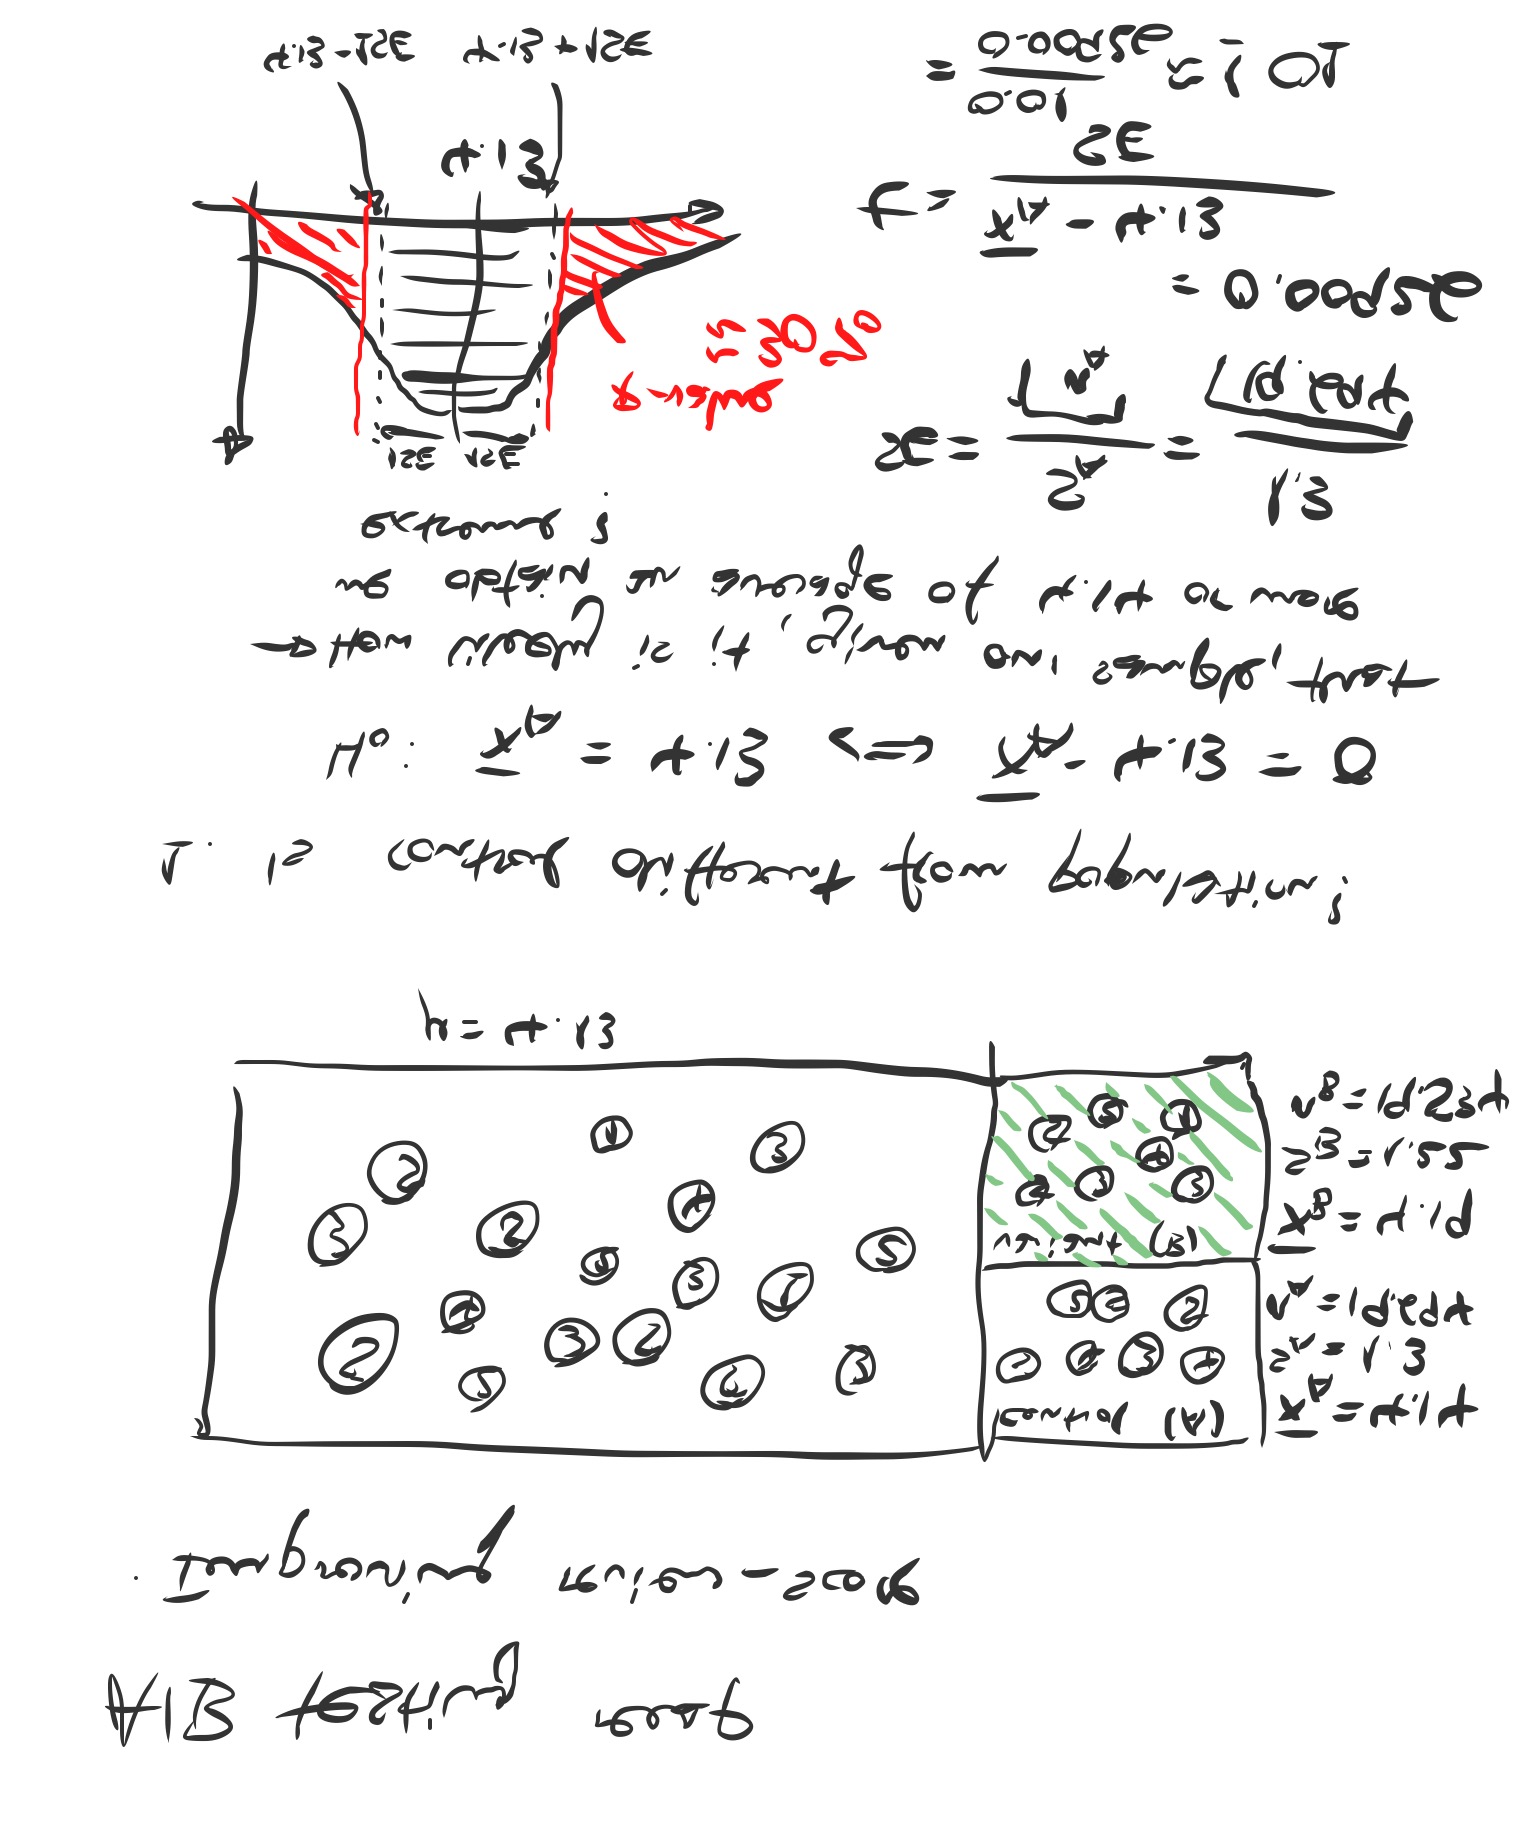 A|B testing recap
· Improving review_score
Control (A)
x̄A = 4.14
sA = 1.3
nA = 19.694
variant (B)
x̄B = 4.19
sB = 1.22
nB = 19.534
5 2 5 3
3 5
4 3 1
2 2
3 5 4
5 3
1
μ = 4.13
1. Is control different from population?
H₀: x̄A = 4.13 <=> x̄A - 4.13 = 0
→ How likely is it, given our sample, that
we obtain an average of 4.14 or more
extreme?
1SE 1SE
p-value
≈ 30%
4.13
4.13 - 1SE 4.13 + 1SE
SE = sA / √nA = 1.3 / √19.694
= 0.00926
t = x̄A - 4.13 / SE
= 0.01 / 0.00926 ≈ 1.01